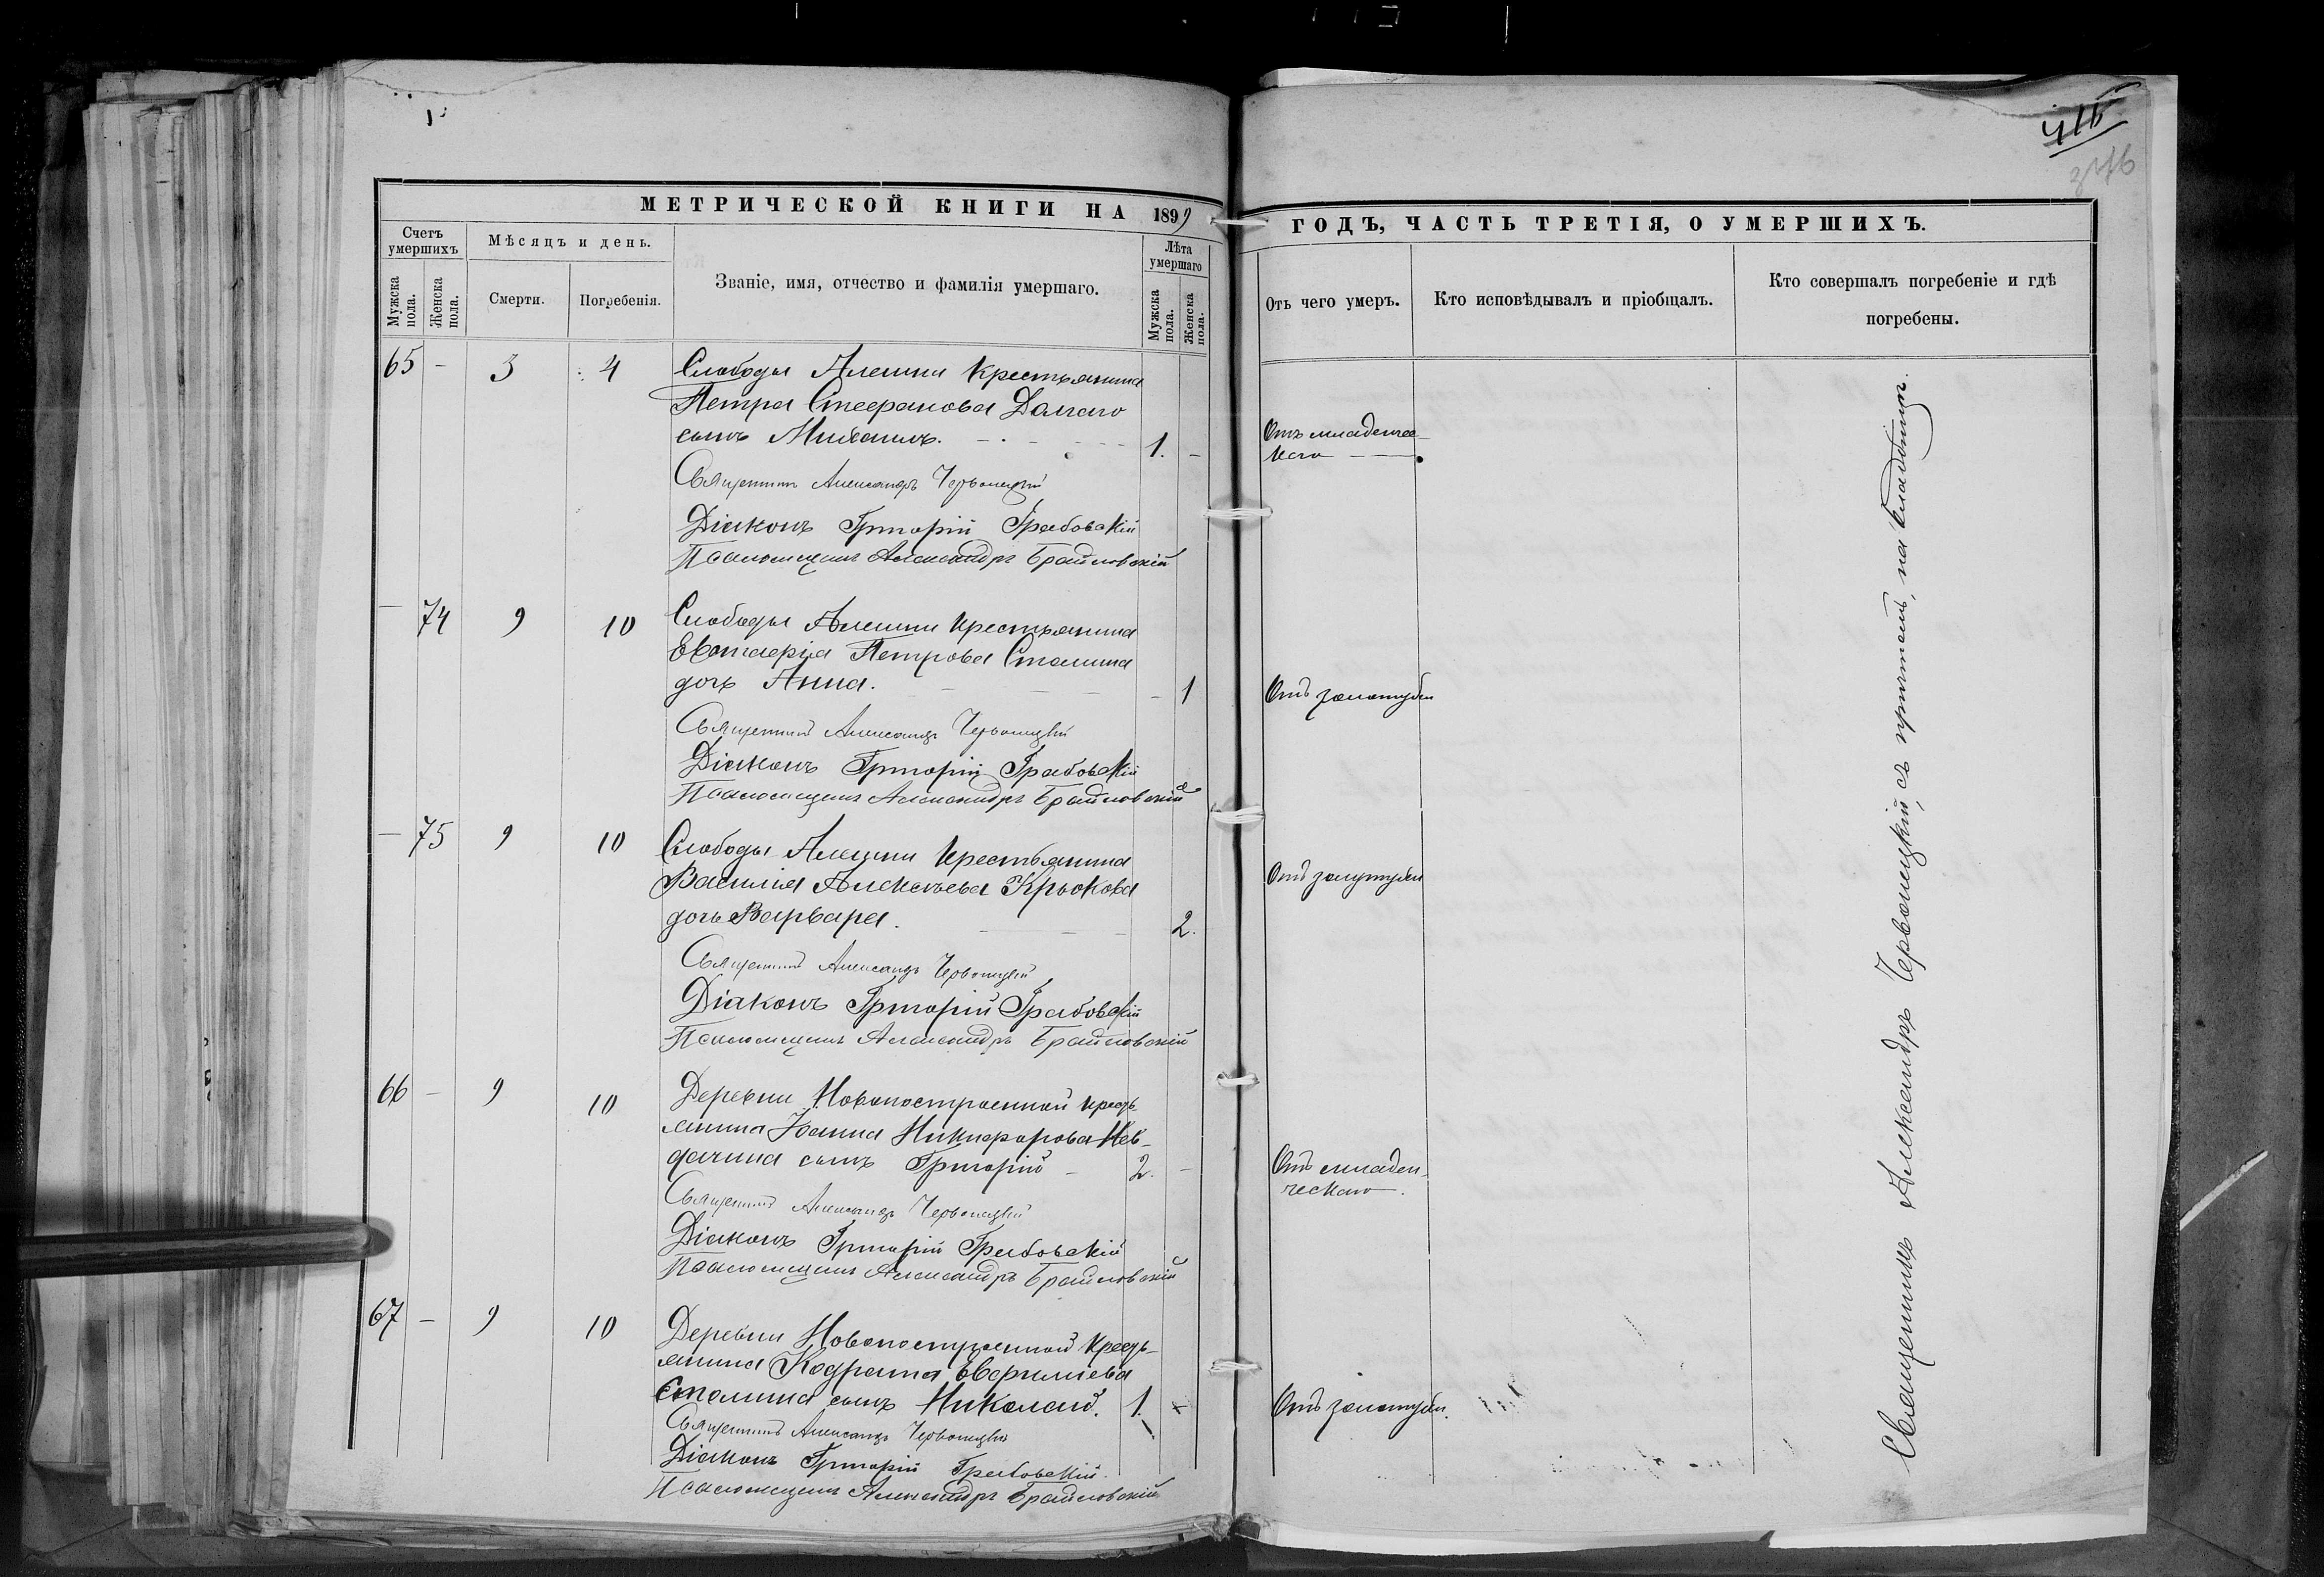 415
МЕТРИЧЕСКОЙ КНИГИ НА 1899
ГОДЪ, ЧАСТЬ ТРЕТІЯ, О УМЕРШИХЪ.
Счетъ умершихъ
Мѣсяцъ и день.
Званіе, имя, отчество и фамилія умершаго.
Лѣта умершаго
Мужска пола.
Женска пола.
Смерти.
Погребенія.
Мужска пола.
Женска пола.
Отъ чего умеръ.
Кто исповѣдывалъ и пріобщалъ.
Кто совершалъ погребеніе и гдѣ
погребены.
65 - 3 4 Слободы Алешни крестьянина
Петра Стефанова
сынъ Михаилъ. 1. -
Отъ младенчес-
каго
Священникъ Александръ Червонецкій
Діаконъ Григорій Грабовскій
Псаломщикъ Александръ Браиловскій
- 74 9 10 Слободы Алешни крестьянина
Петрова Сталина
дочь Анна. - 1
Отъ золотухи
Священникъ Александръ Червонецкій
Діаконъ Григорій Грабовскій
Псаломщикъ Александръ Браиловскій
- 75 9 10 Слободы Алешни крестьянина
Василія Алексѣева Крюкова
дочь Варвара. 2.
Отъ золутухи
Священникъ Александръ Червонецкій
Діаконъ Григорій Грабовскій
Псаломщикъ Александръ Браиловскій
66 - 9 10 Деревни Новопостроенной кресть
янина Іоанна Никифорова
сынъ Григорій - 2. -
Отъ младен-
ческаго.
Священникъ Александръ Червонецкій
Діаконъ Григорій Грабовскій
Псаломщикъ Александръ Браиловскій
67 - 9 10 Деревни Новопостроенной кресть-
янина Кодрата
сынъ Николай. 1.
Отъ золотухи.
Священникъ Александръ Червонецкій
Діаконъ Григорій Грабовскій
Псаломщикъ Александръ Браиловскій
Священникъ Александръ Червонецкій, съ причтомъ, на кладбищѣ.